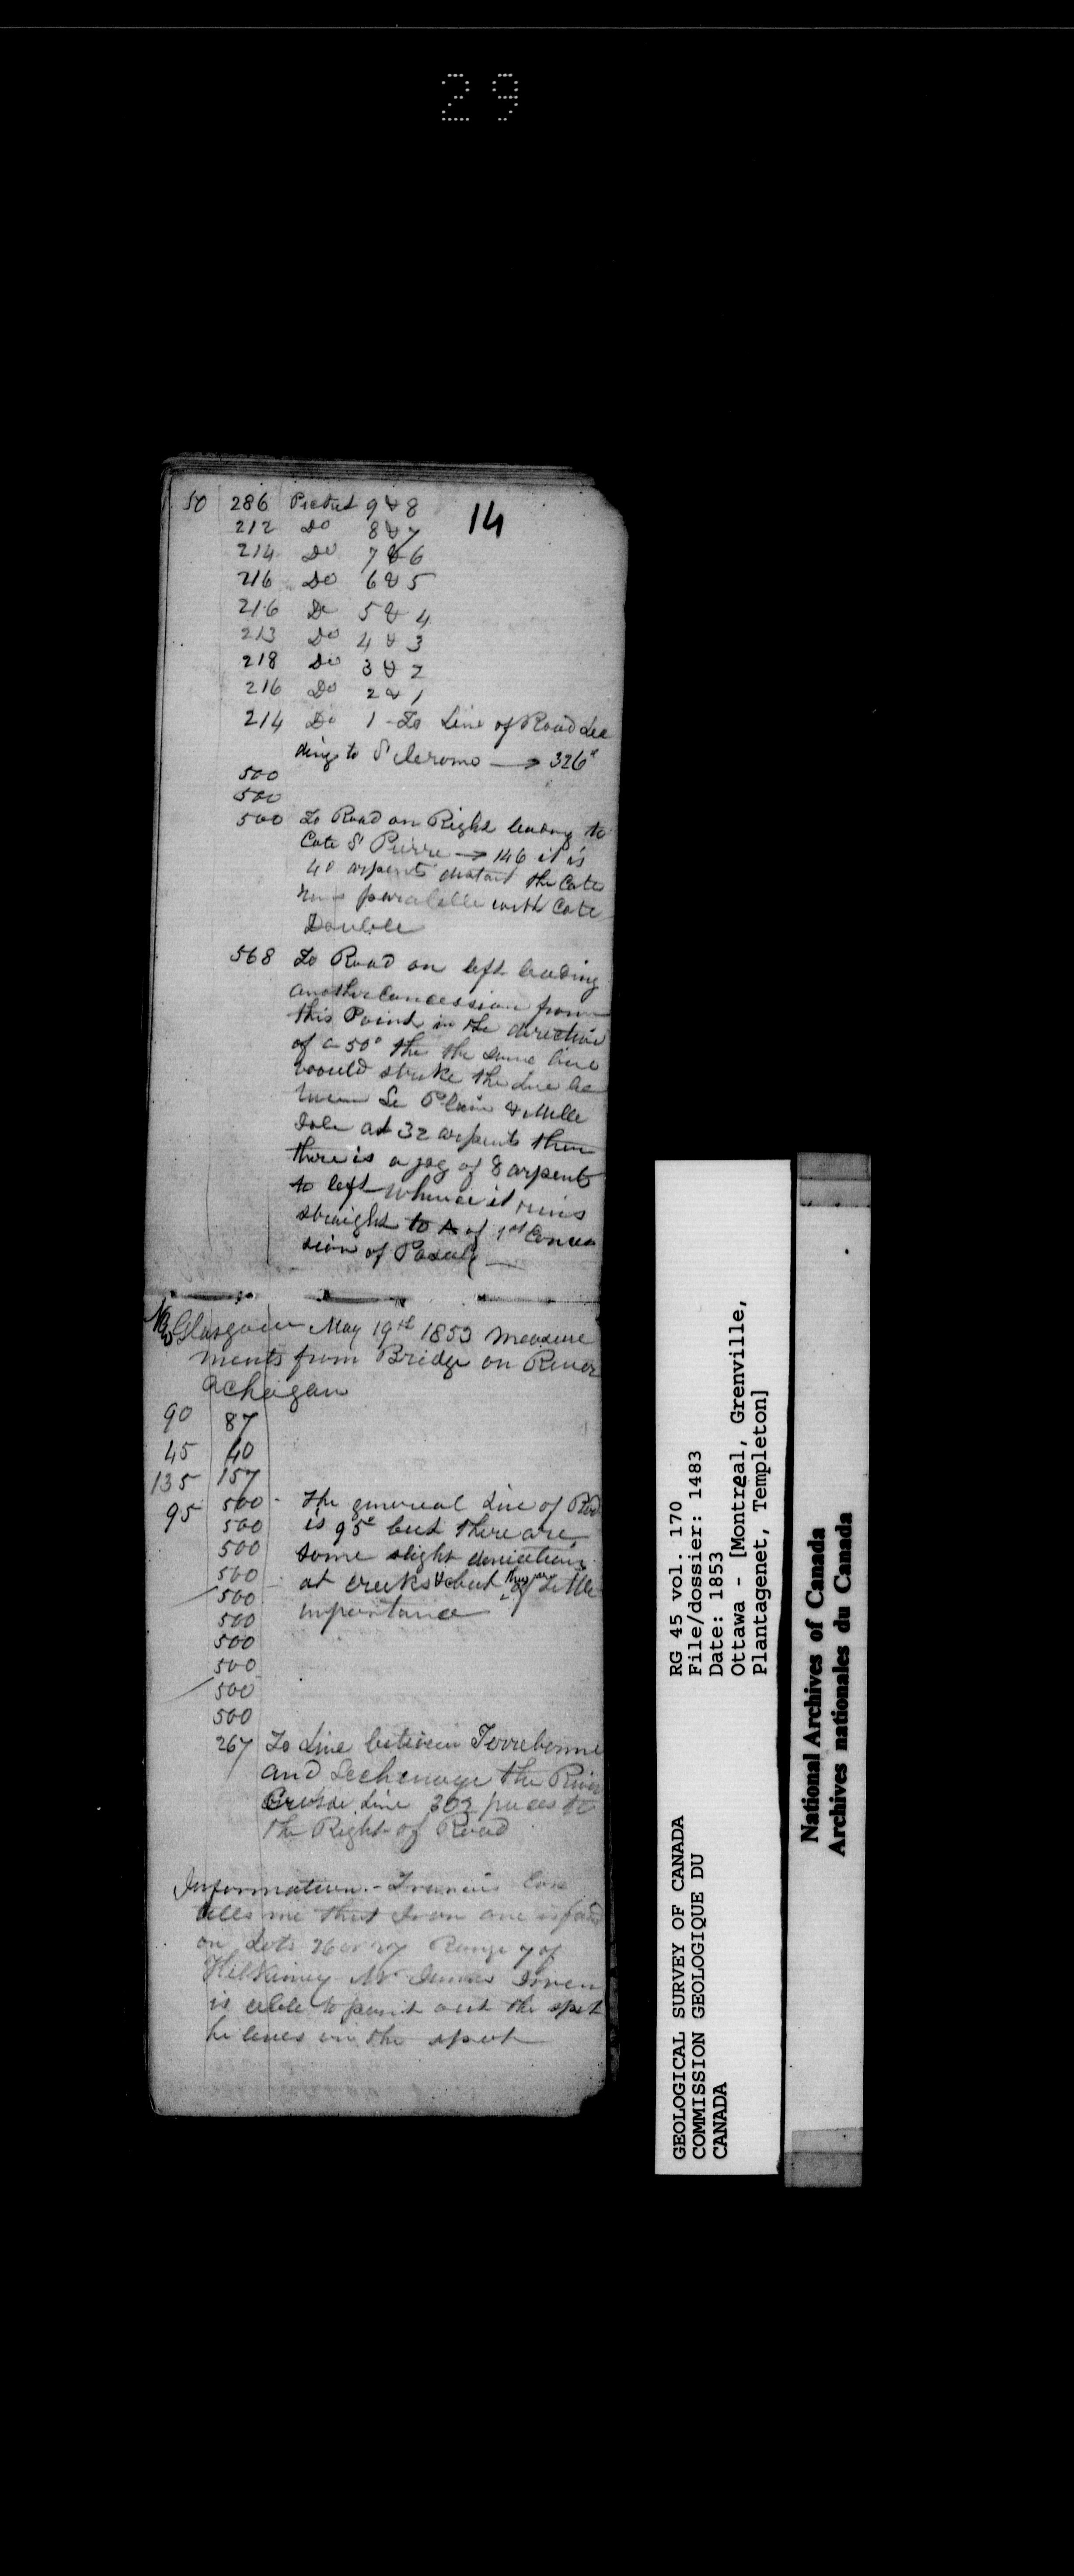 29
14
50 286 Picket 9 & 8
212 Do 8 & 7
214 Do 7 & 6
216 Do 6 & 5
216 Do 5 & 4
213 Do 4 & 3
218 Do 3 & 2
216 Do 2 & 1
214 Do 1 To Line of Road Lea
ding to St Jeromo → 326°
500
500
500 To Road on Right leading to
Cote St Pierre → 146 it is
40 arpents distant the Cote
runs paralelle with Cote
Double
568 To Road on left leading
another Concession from
this Point in the direction
of 50° the the same line
would strike the Line be
tween La Plain & Mille
Isle at 32 arpents then
there is a jog of 8 arpents
to left whence it runs
straight to A of 1st Conces
sion of
New Glasgow May 19th 1853 Measure
ments from Bridge on River
Achagan
90 87
45 40
135 157
95 500 The general Line of Rod
500 is 95° but there are
500 some slight deviations
500 at creeks &c but they are of Little
500 importance
500
500
500
500
500
267 To Line between Terrebonne
and Lachenaye the River
Line 302 paces to
the Right of Road
Information.- Francis
tells me that Iron ore is found
on Lots 26 or 27 Range 7 of
Kilkenny Mr James
is able to point out the spot
he lives on the spot
GEOLOGICAL SURVEY OF CANADA
COMMISSION GEOLOGIQUE DU
CANADA
RG 45 vol. 170
File/dossier: 1483
Date: 1853
Ottawa - [Montreal, Grenville,
Plantagenet, Templeton]
National Archives of Canada
Archives nationales du Canada